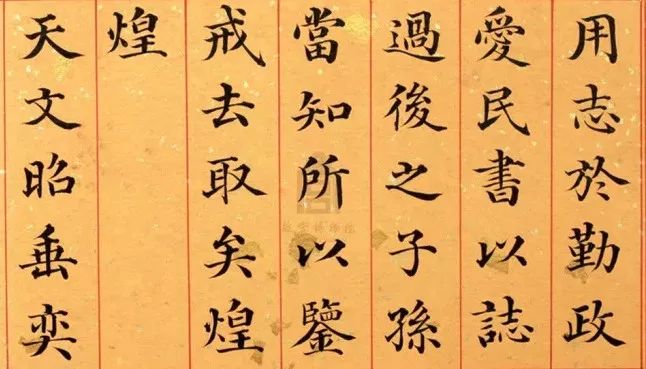 用志於勤政
愛民書以誌
過後之子孫
當知所以鑒
戒去取矣煌
煌
天文昭垂奕